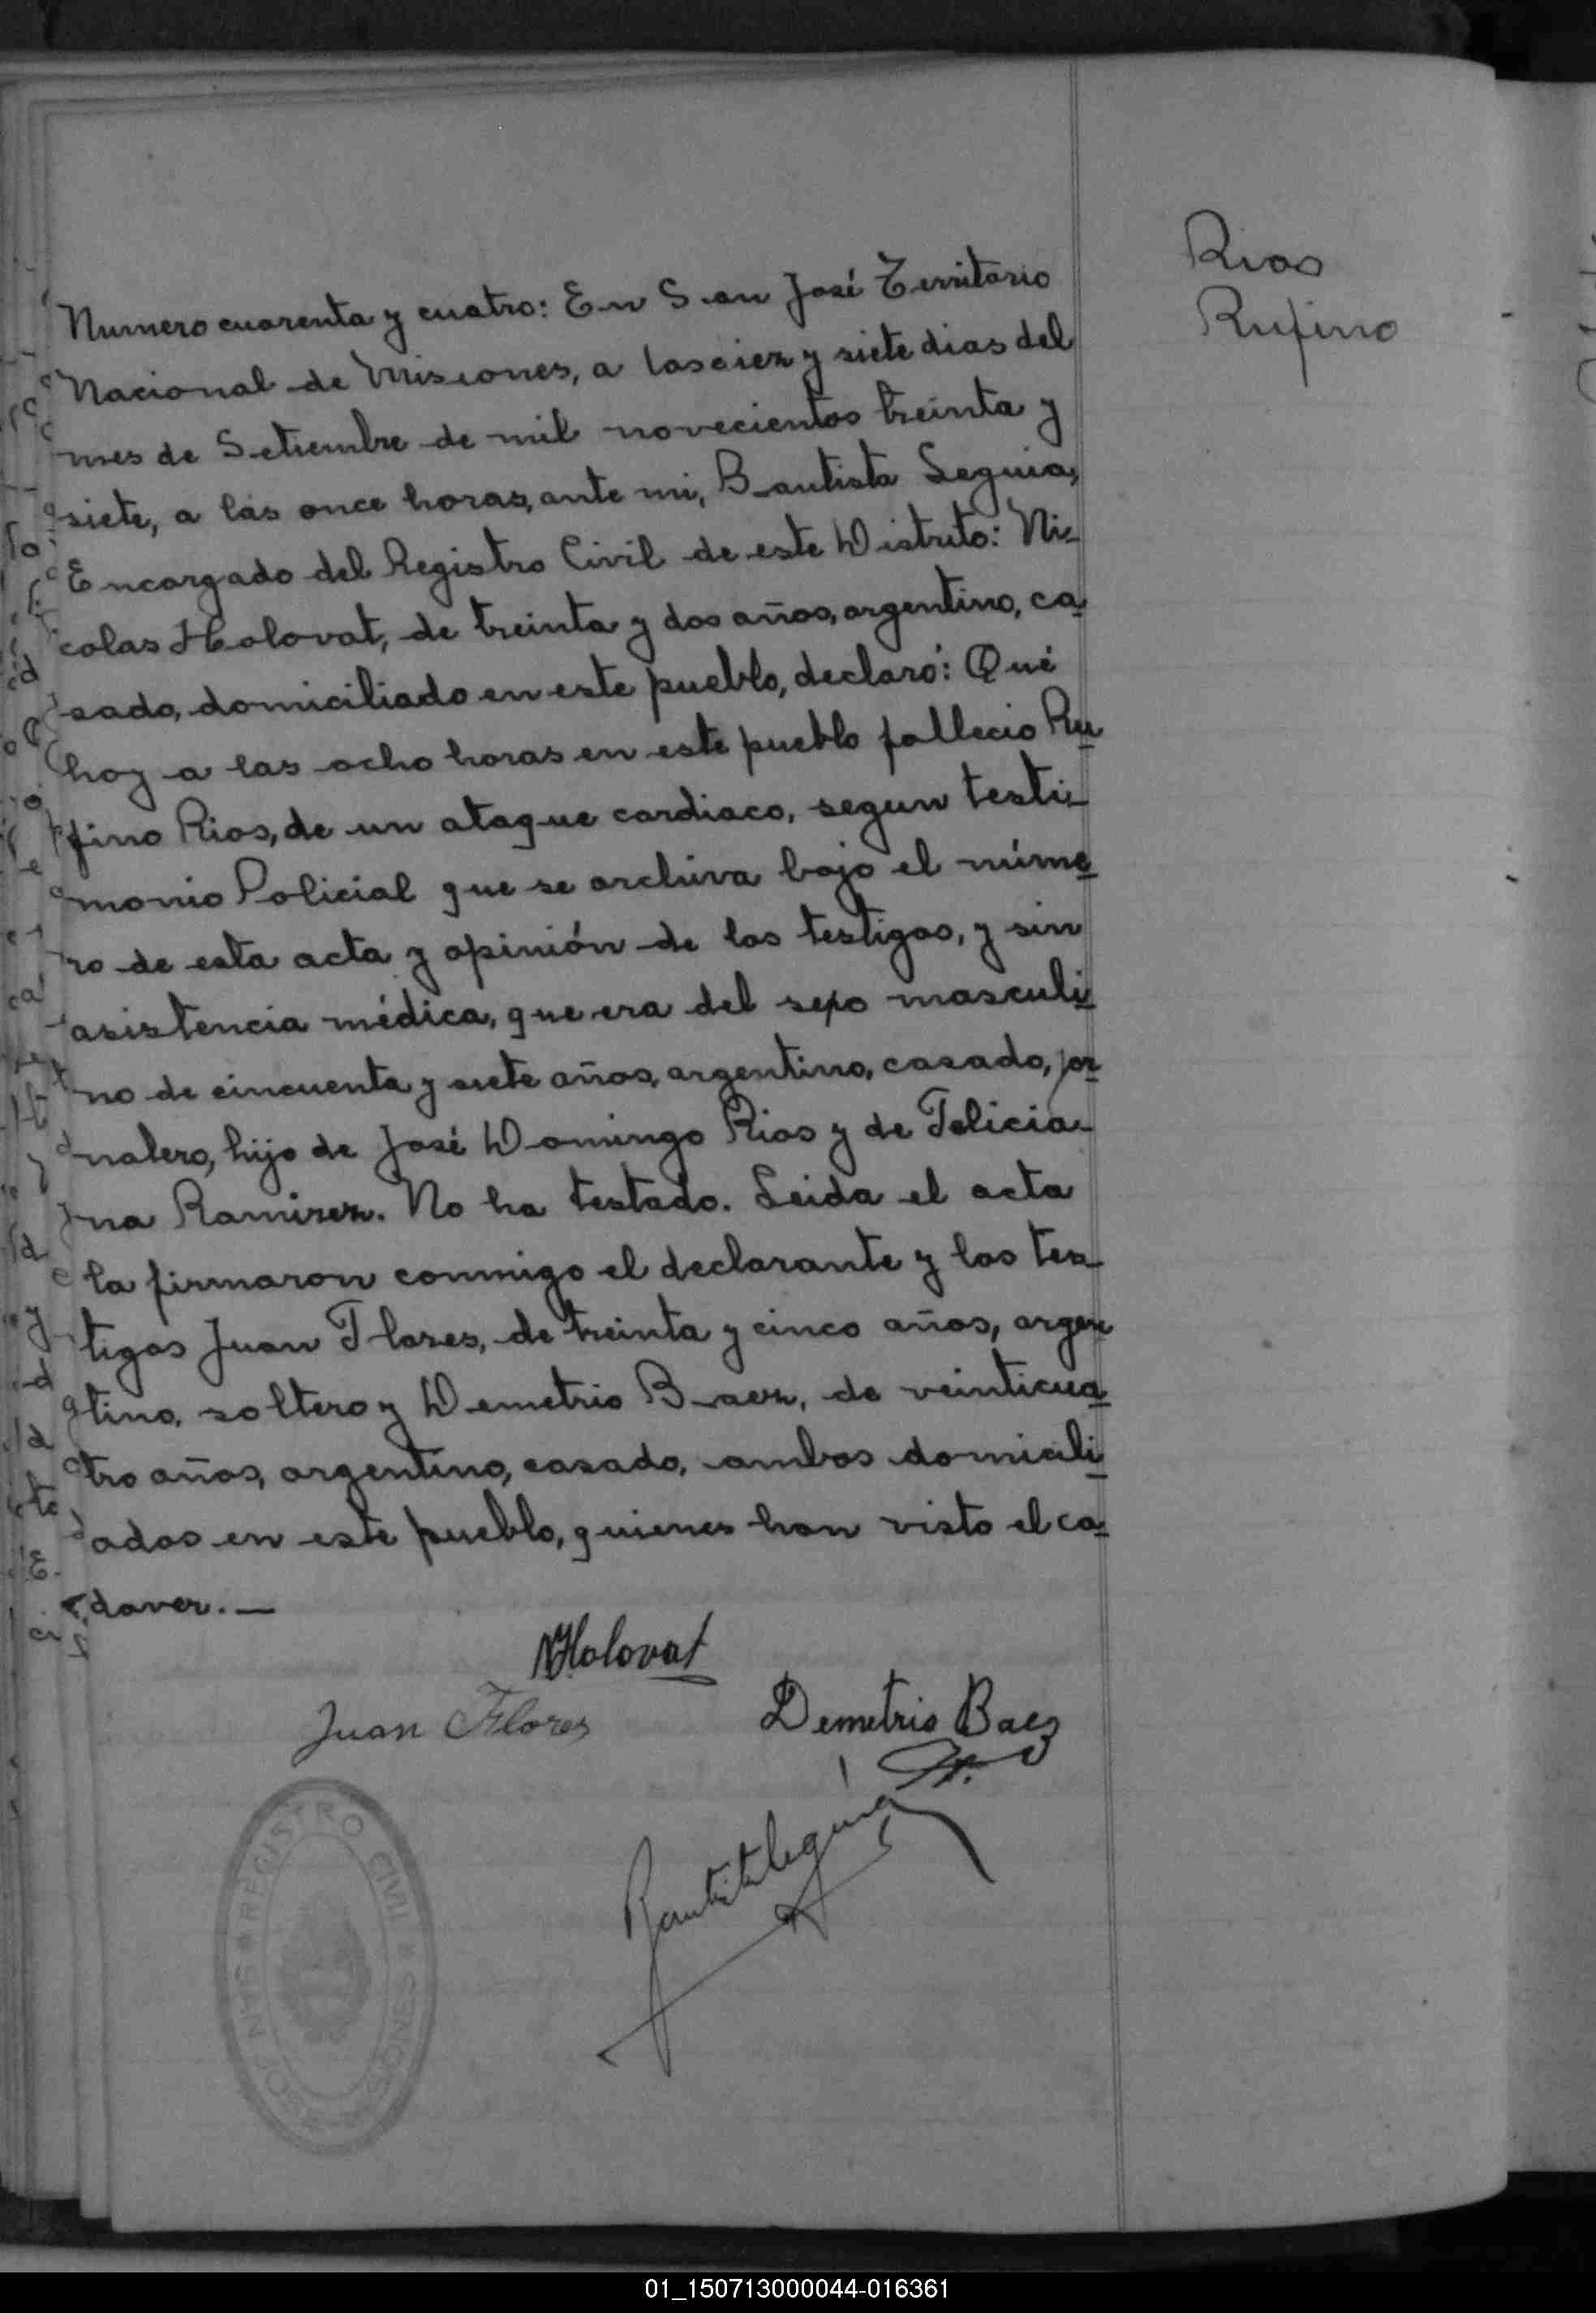 Rios
Rufino
Numero cuarenta y cuatro: En San José Territorio
Nacional de Misiones, a los diez y siete dias del
mes de Setiembre de mil novecientos treinta y
siete, a las once horas, ante mi, Bautista Leguia,
Encargado del Registro Civil de este Distrito: Ni-
colas Holovat, de treinta y dos años, argentino, ca
sado, domiciliado en este pueblo, declaró: Qué
hoy a las ocho horas en este pueblo fallecio Ru
fino Rios, de un ataque cardiaco, segun testi-
monio Policial que se archiva bajo el núme
ro de esta acta y opinión de los testigos, y sin
asistencia médica, que era del sexo masculi
no de cincuenta y siete años, argentino, casado, jor
nalero, hijo de José Domingo Rios y de Felicia-
na Ramirez. No ha testado. Leida el acta
la firmaron conmigo el declarante y los tes
tigos Juan Flores, de treinta y cinco años, argen
tino, soltero y Demetrio Baez, de veinticua
tro años, argentino, casado, ambos domicili
ados en este pueblo, quienes han visto el ca
daver.—
NHolovat
Juan Flores Demetrio Baez
Bautista Leguia
REGISTRO CIVIL * MISIONES * SAN JOSE
01_150713000044-016361